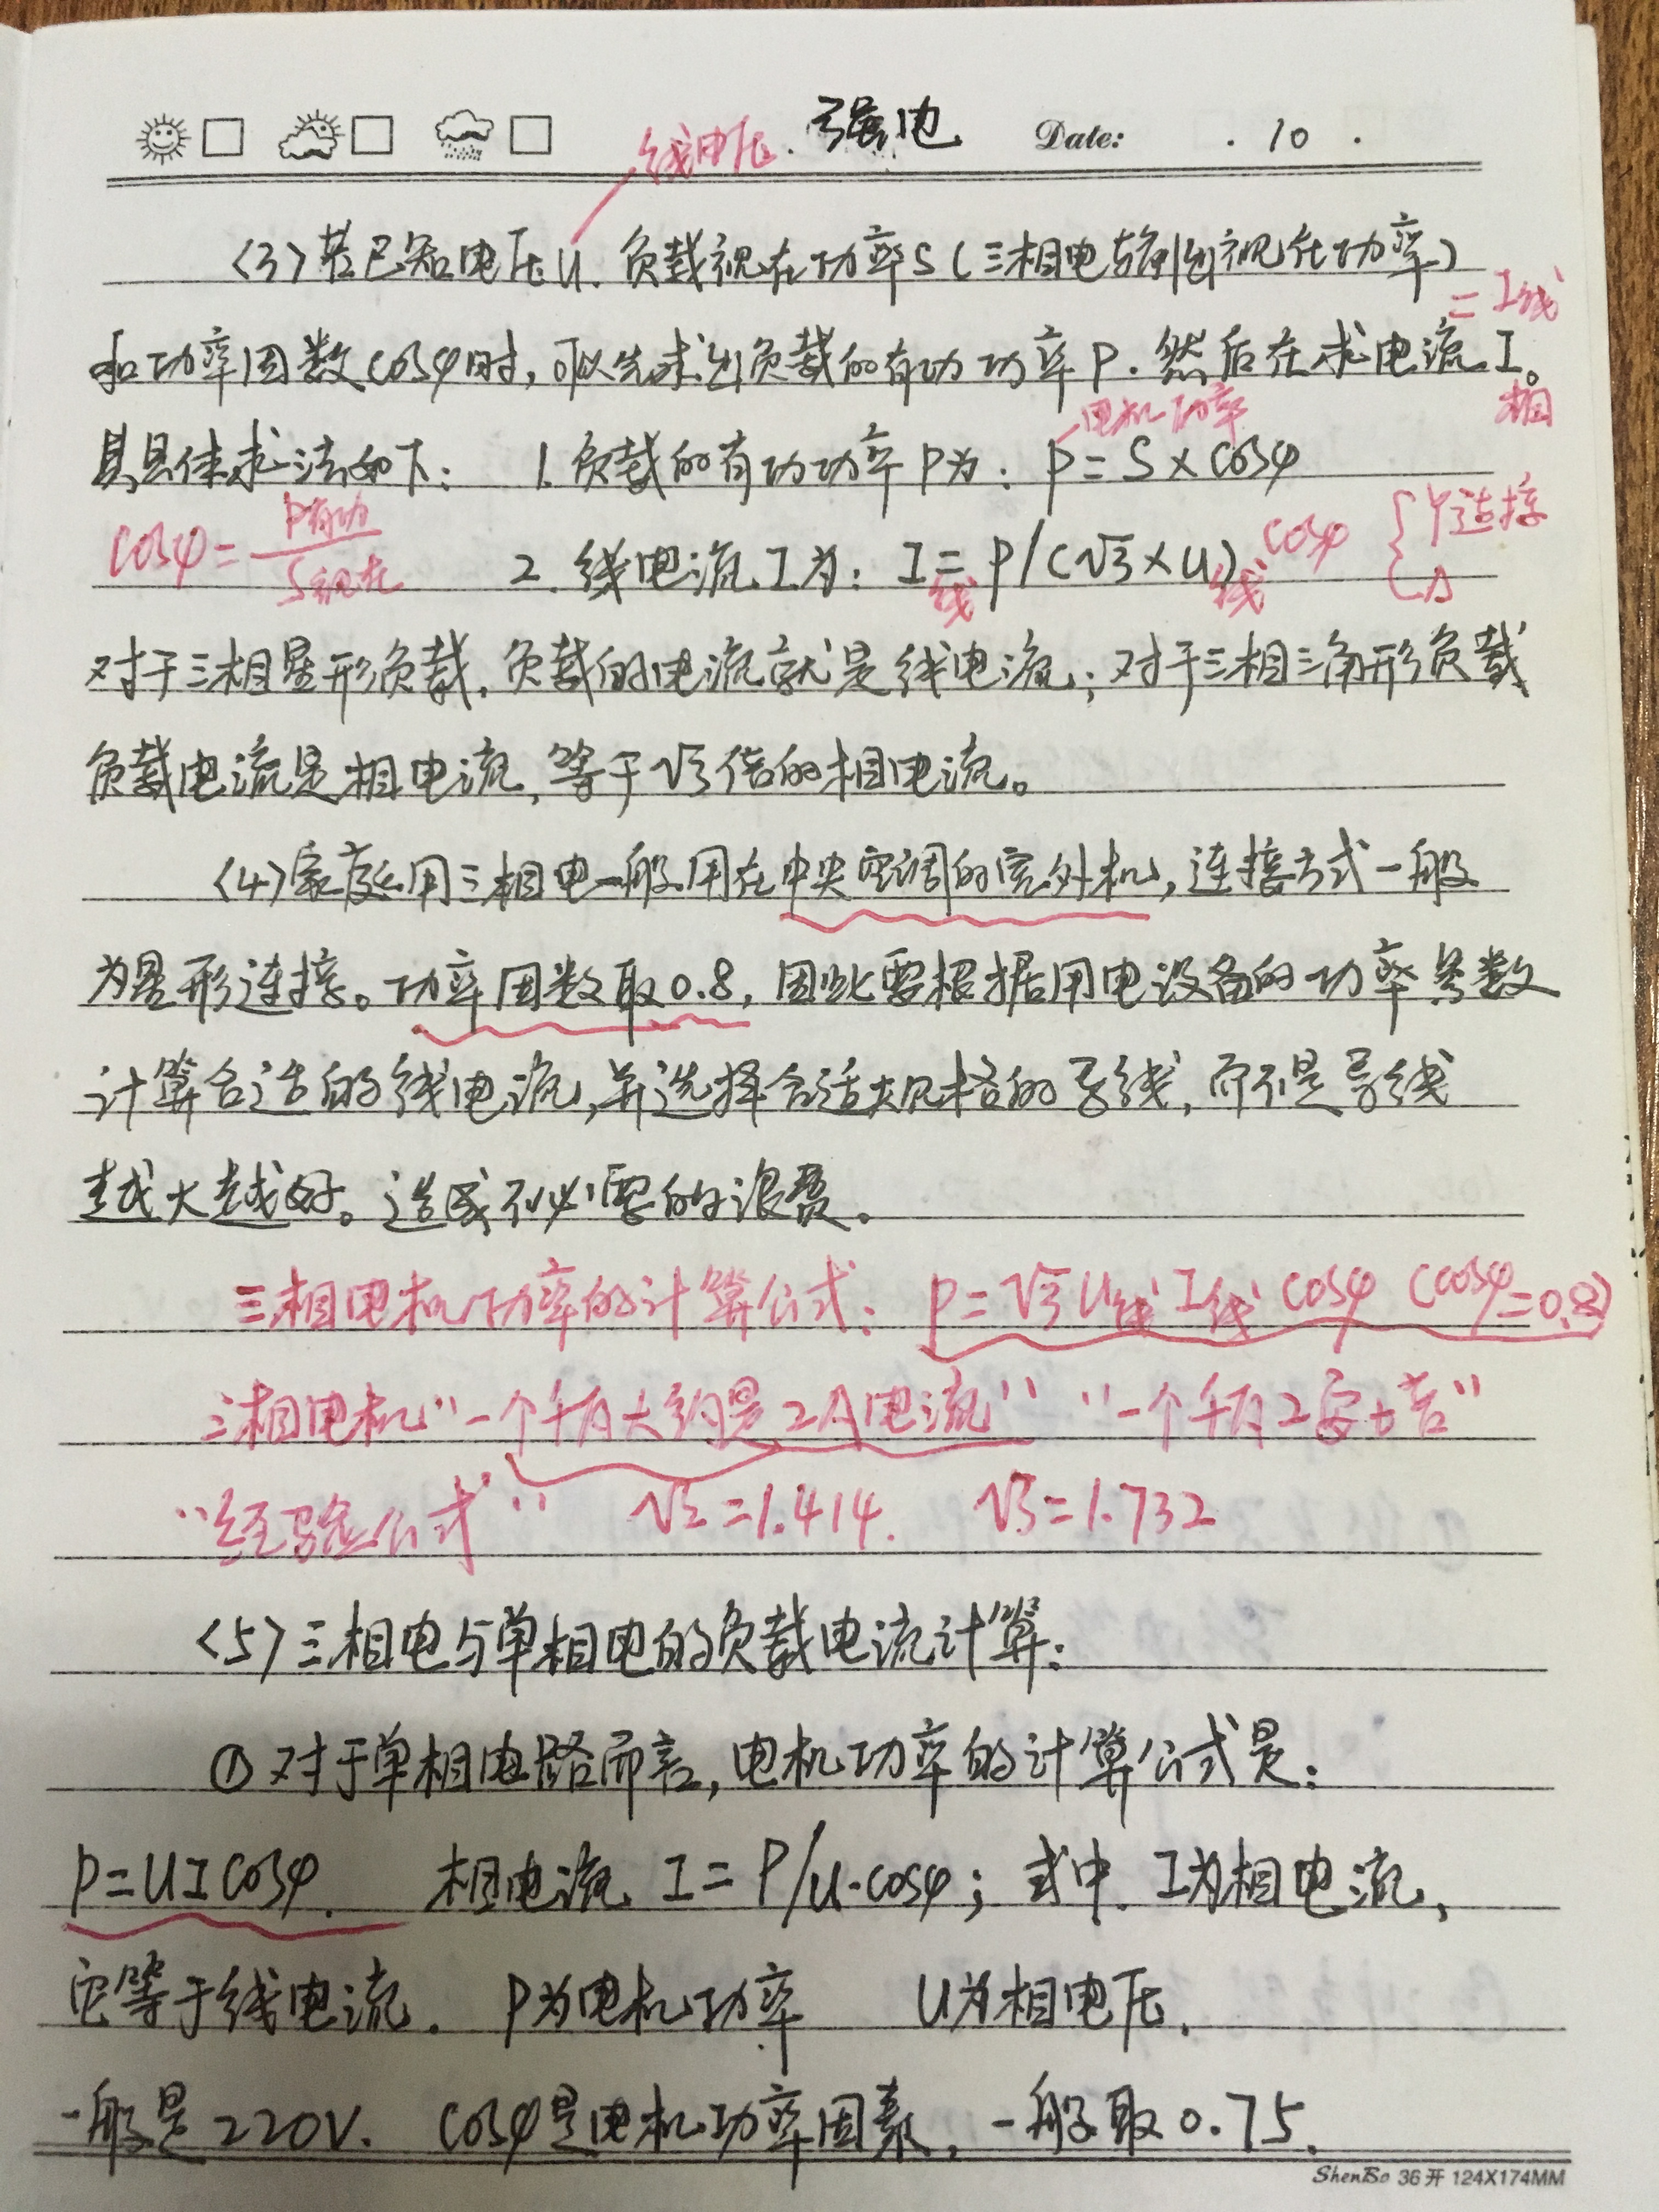 强电 Date: . 10 .
线电压
<3>若已知电压U.负载视在功率S(三相电输出视在功率)
=I线
和功率因数cosφ时,可以先求出负载的有功功率P.然后在求电流I。
电机功率 相
其具体求法如下: 1.负载的有功功率P为: P=S×cosφ
cosφ=P有功/S视在 2.线电流I为: I线=P/(√3×U线)cosφ {Y连接 △
对于三相星形负载.负载的电流就是线电流;对于三相三角形负载
负载电流是相电流,等于√3倍的相电流。
<4>家庭用三相电一般用在中央空调的室外机,连接方式一般
为星形连接。功率因数取0.8,因此要根据用电设备的功率参数
计算合适的线电流,并选择合适规格的导线,而不是导线
越大越好。造成不必要的浪费。
三相电机功率的计算公式: P=√3U线I线cosφ (cosφ=0.8)
三相电机"一个千瓦大约是2A电流" "一个千瓦2安培"
"经验公式" √2=1.414. √3=1.732
<5>三相电与单相电的负载电流计算:
①对于单相电路而言,电机功率的计算公式是:
P=UIcosφ. 相电流 I=P/U·cosφ; 式中.I为相电流,
它等于线电流. P为电机功率 U为相电压.
一般是220V. cosφ是电机功率因素,一般取0.75.
ShenBo 36开 124X174MM